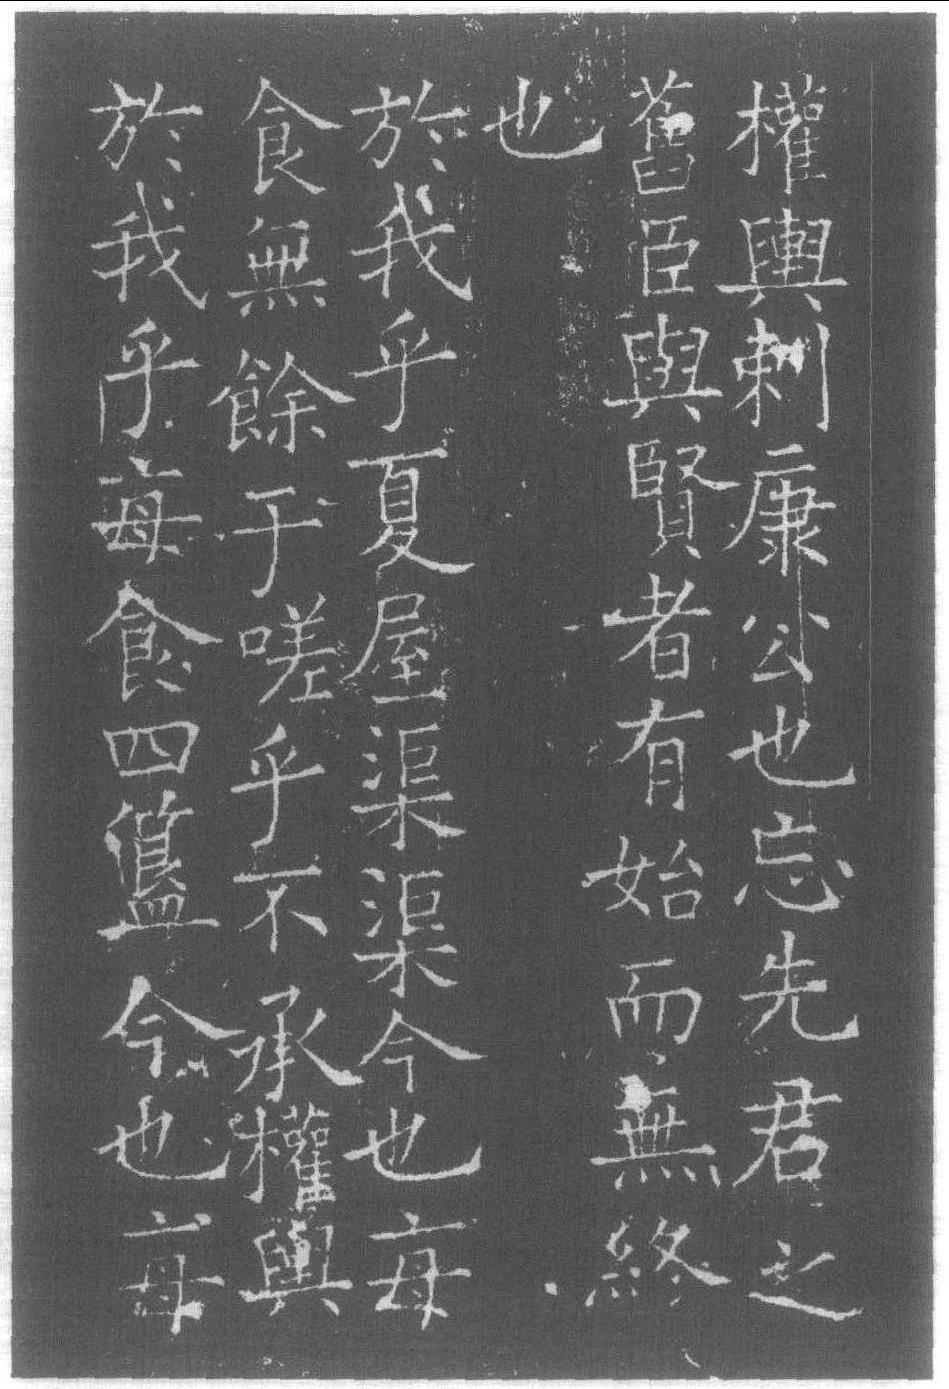 權輿刺康公也忘先君之
舊臣與賢者有始而無終
也
於我乎夏屋渠渠今也每
食無餘于嗟乎不承權輿
於我乎每食四簋今也每